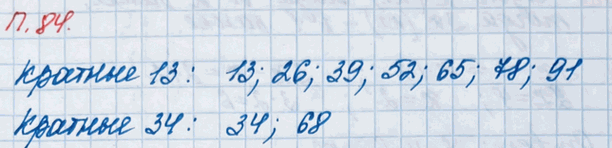 П.84.
Кратные 13: 13; 26; 39; 52; 65; 78; 91
Кратные 34: 34; 68